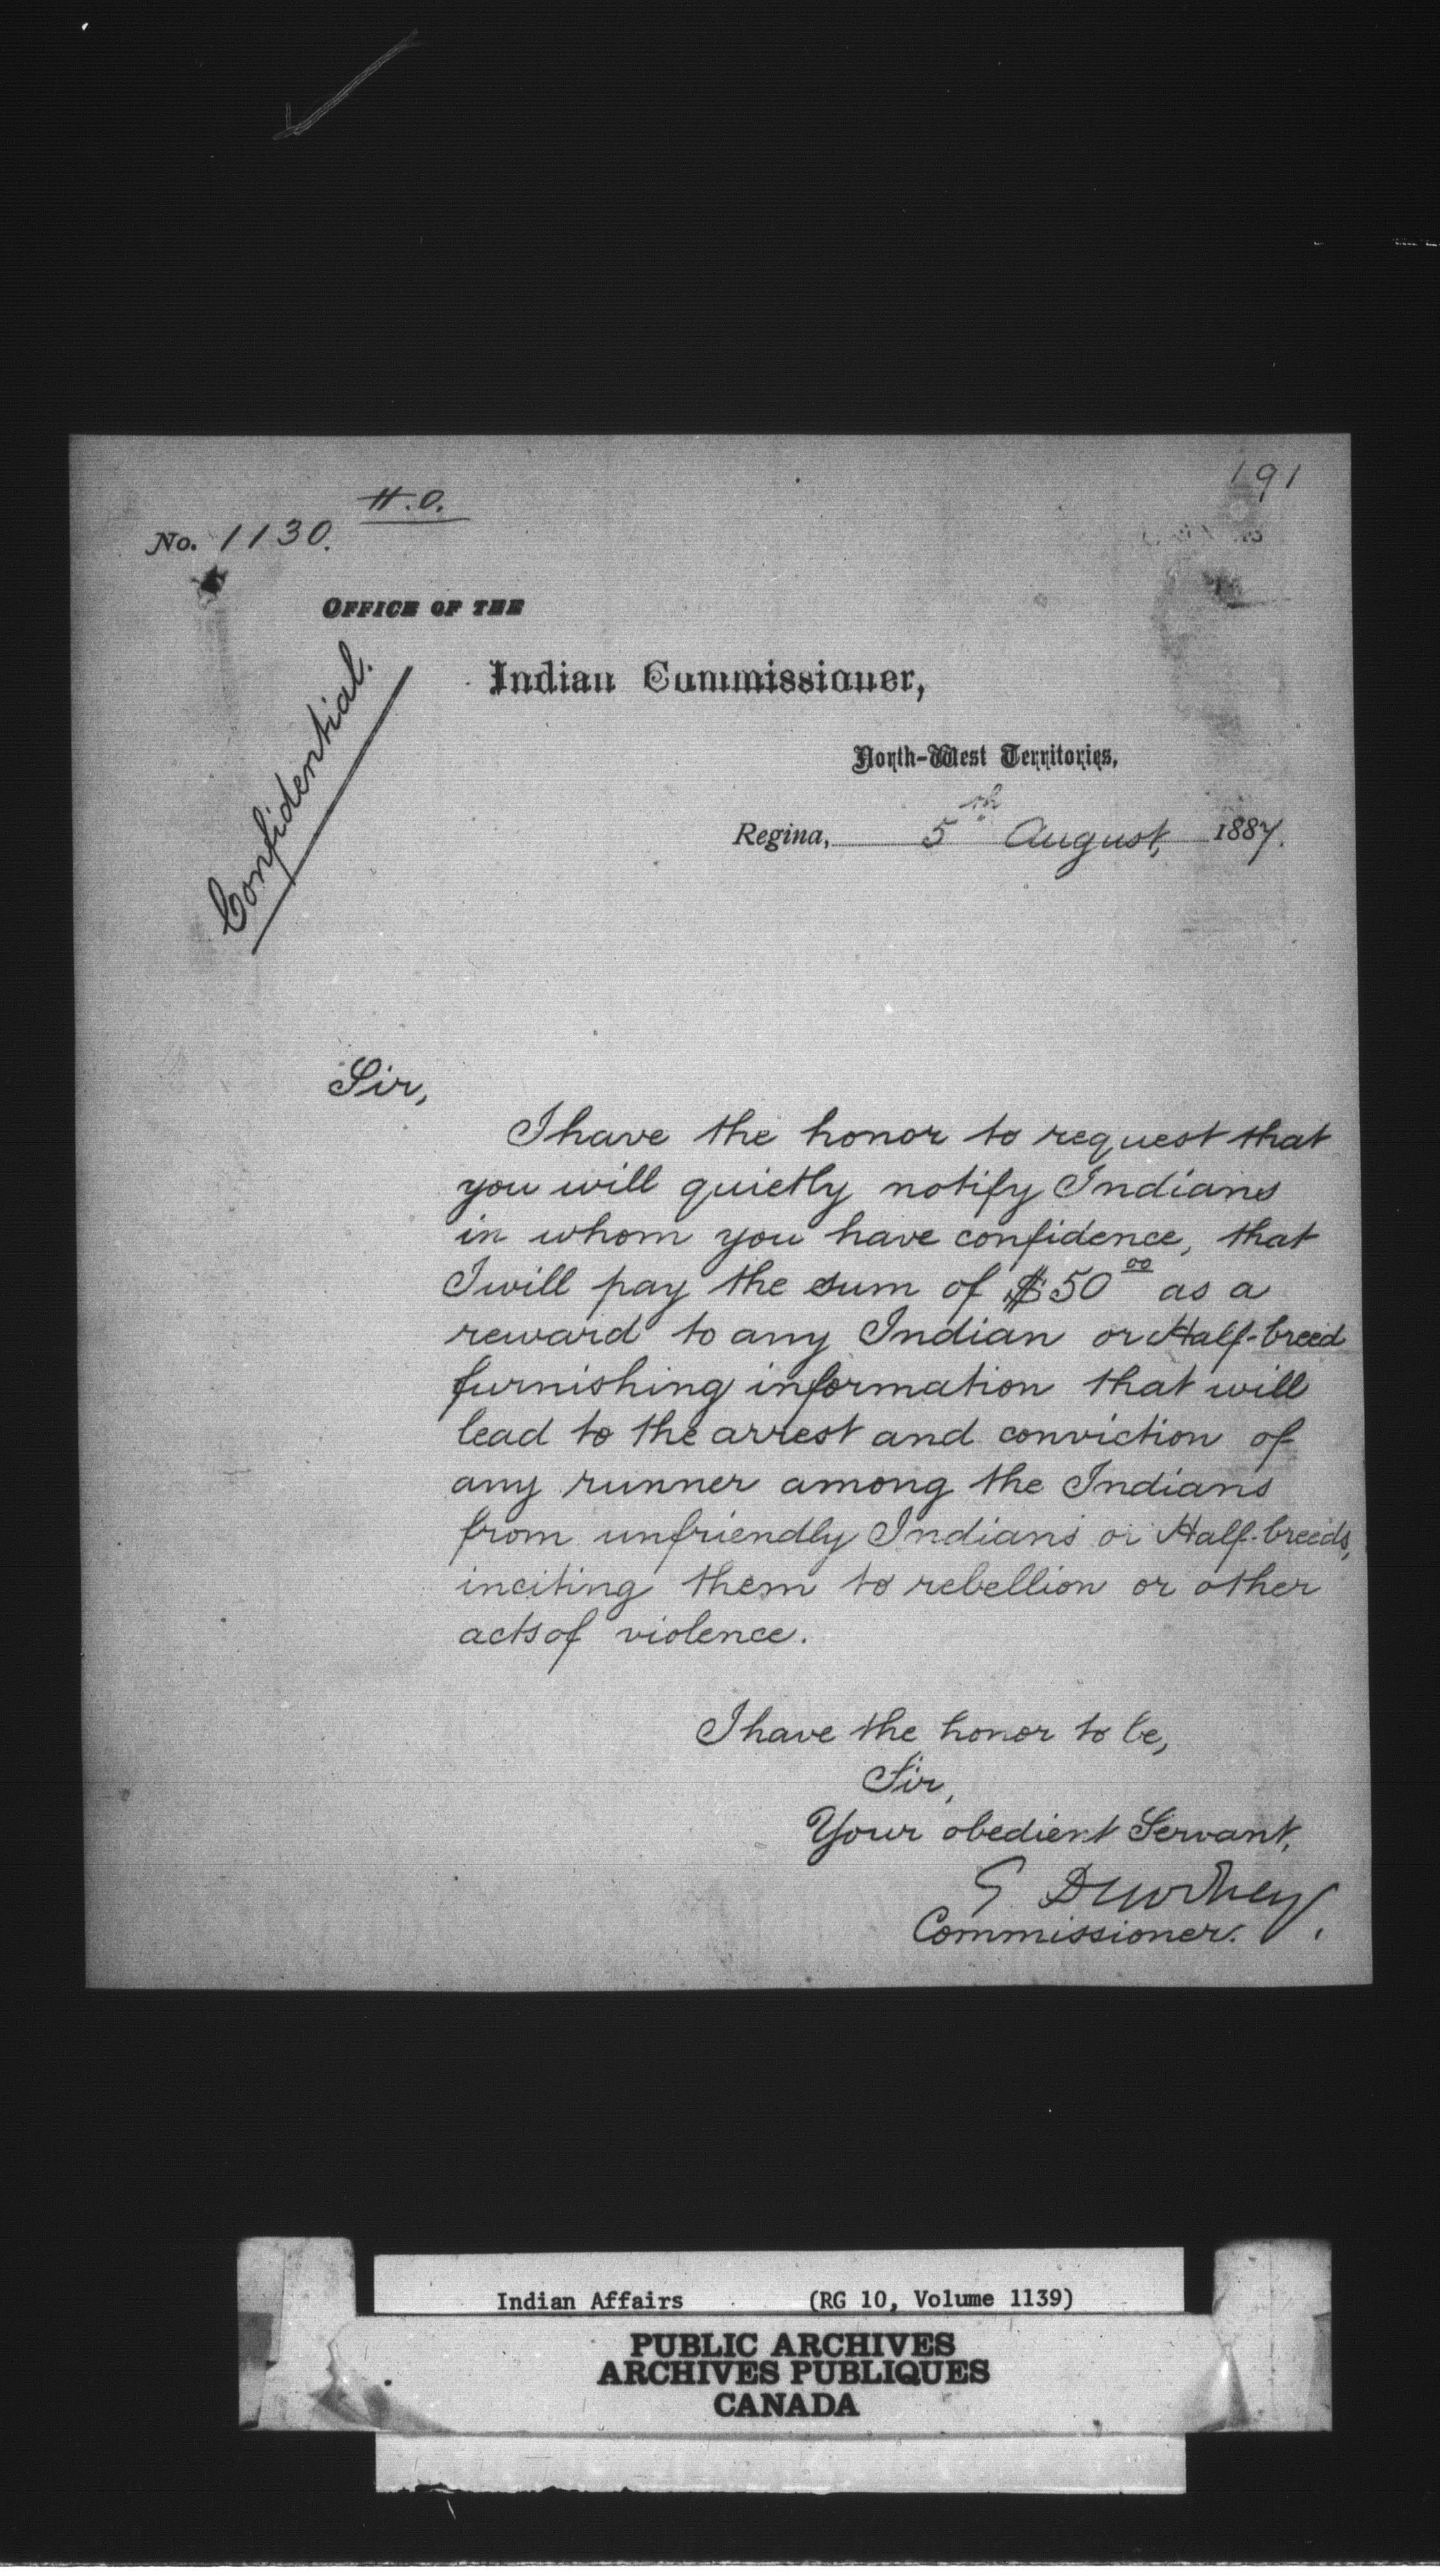 191
H.O.
No. 1130.
OFFICE OF THE
Confidential.
Indian Commissioner,
North-West Territories,
Regina, 5th August, 1887.
Sir,
I have the honor to request that
you will quietly notify Indians
in whom you have confidence, that
I will pay the sum of $50 00 as a
reward to any Indian or Half-breed
furnishing information that will
lead to the arrest and conviction of
any runner among the Indians
from unfriendly Indians or Half-breeds,
inciting them to rebellion or other
acts of violence.
I have the honor to be,
Sir,
Your obedient Servant,
E Dewdney
Commissioner.
Indian Affairs (RG 10, Volume 1139)
PUBLIC ARCHIVES
ARCHIVES PUBLIQUES
CANADA